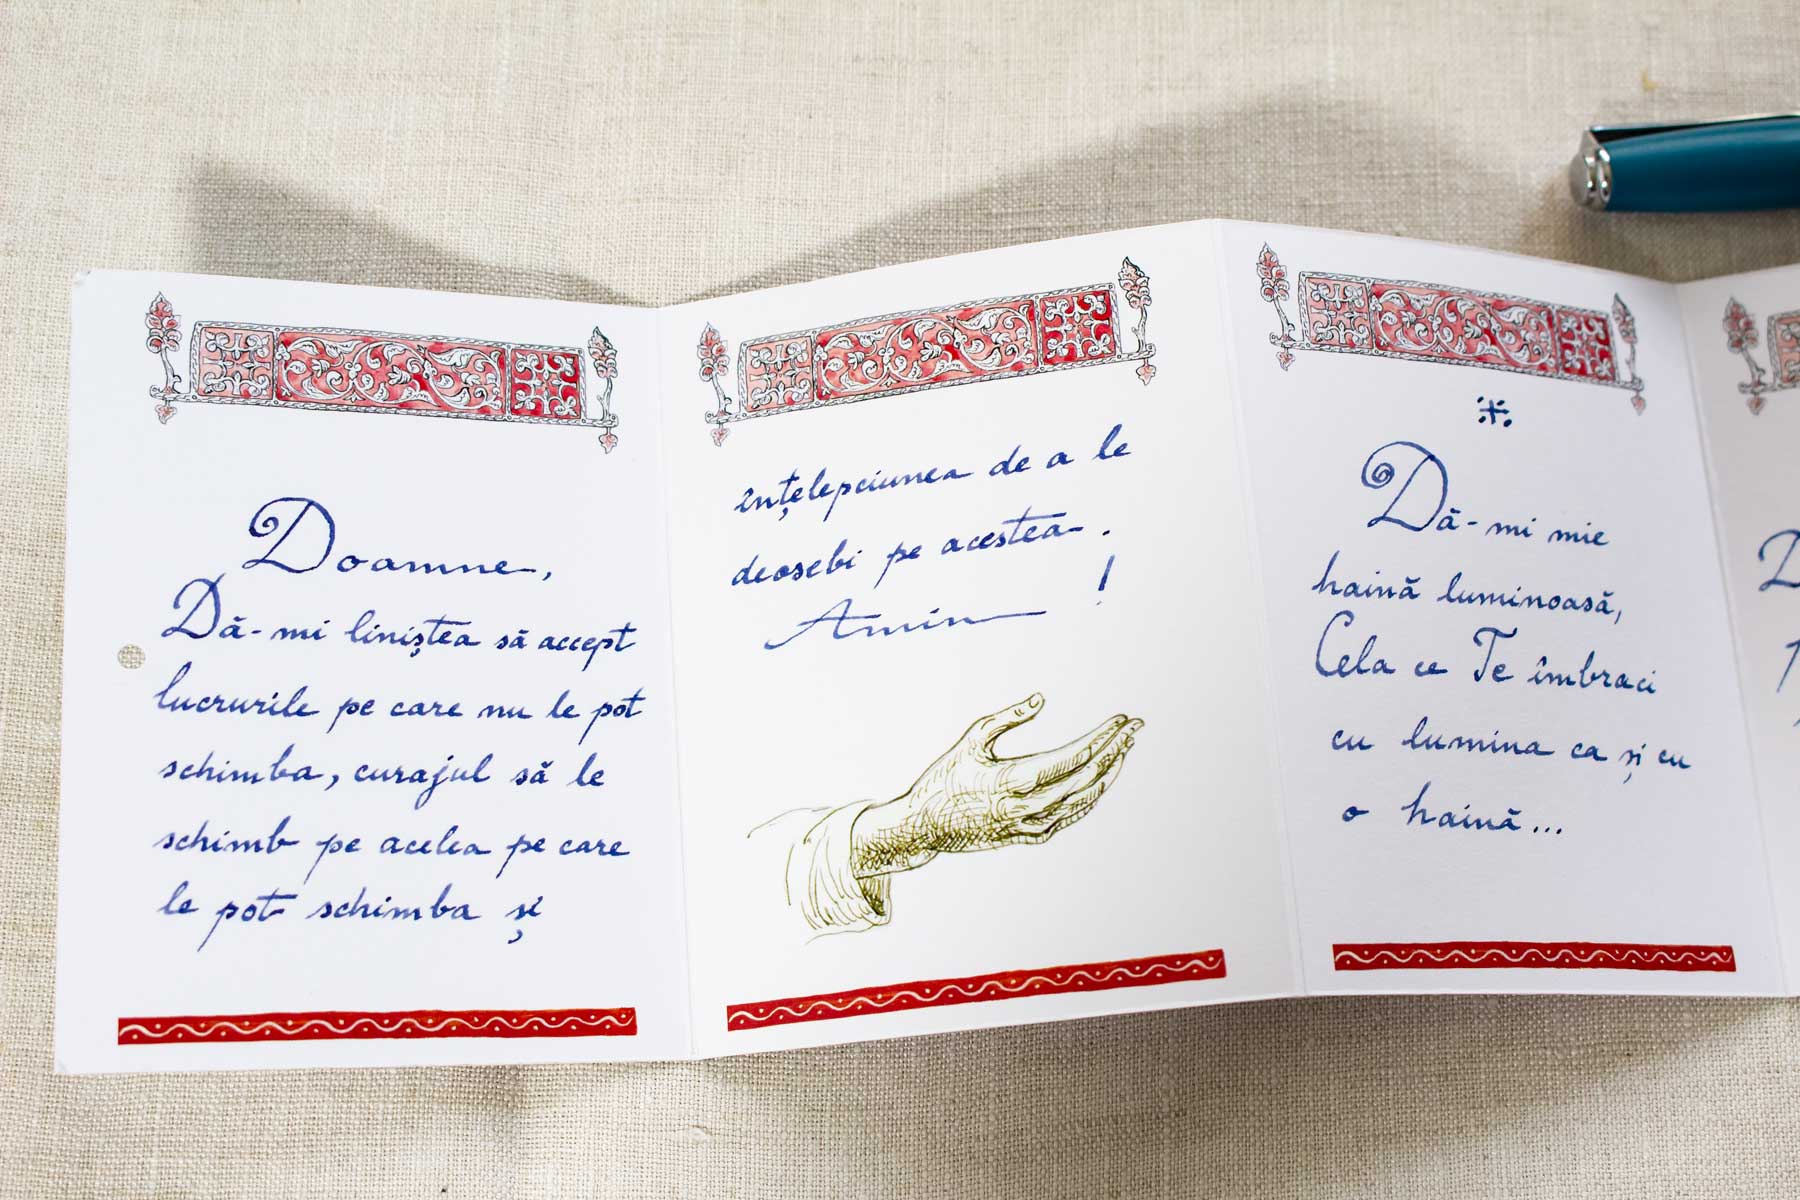 Doamne,
Dă-mi liniștea să accept
lucrurile pe care nu le pot
schimba, curajul să le
schimb pe acelea pe care
le pot schimba și
înțelepciunea de a le
deosebi pe acestea.
Amin!
Dă-mi mie
haină luminoasă,
Cela ce Te îmbraci
cu lumina ca și cu
o haină...